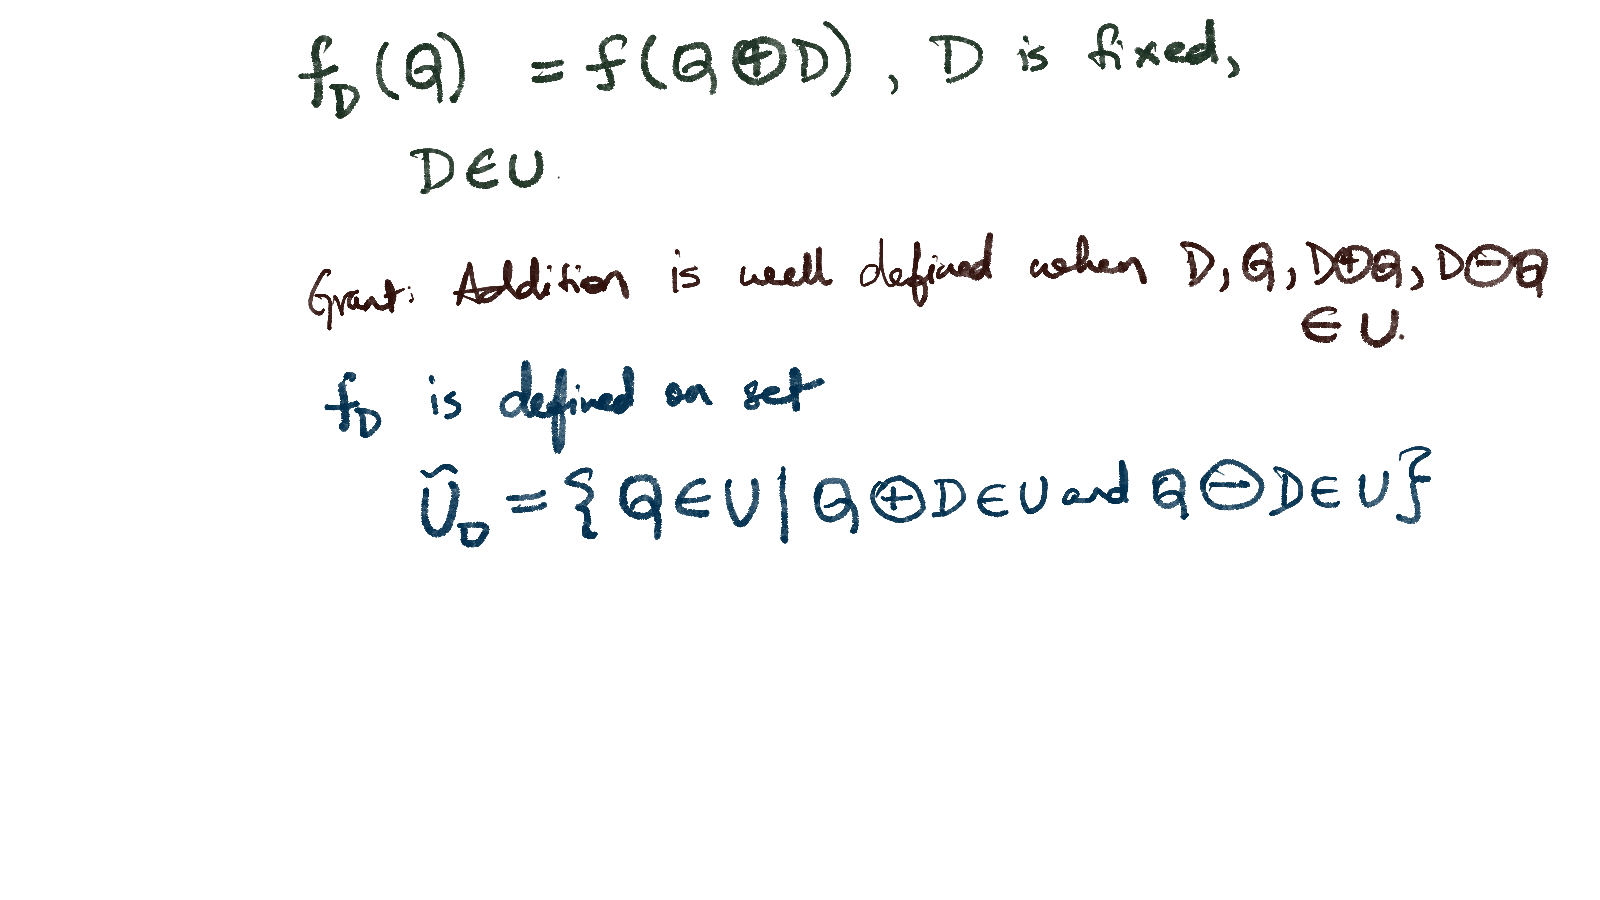 f_D(Q) = f(Q ⊕ D), D is fixed,
D ∈ U.
Grant: Addition is well defined when D, Q, D⊕Q, D⊖Q
∈ U.
f_D is defined on set
Ũ_D = { Q ∈ U | Q ⊕ D ∈ U and Q ⊖ D ∈ U }